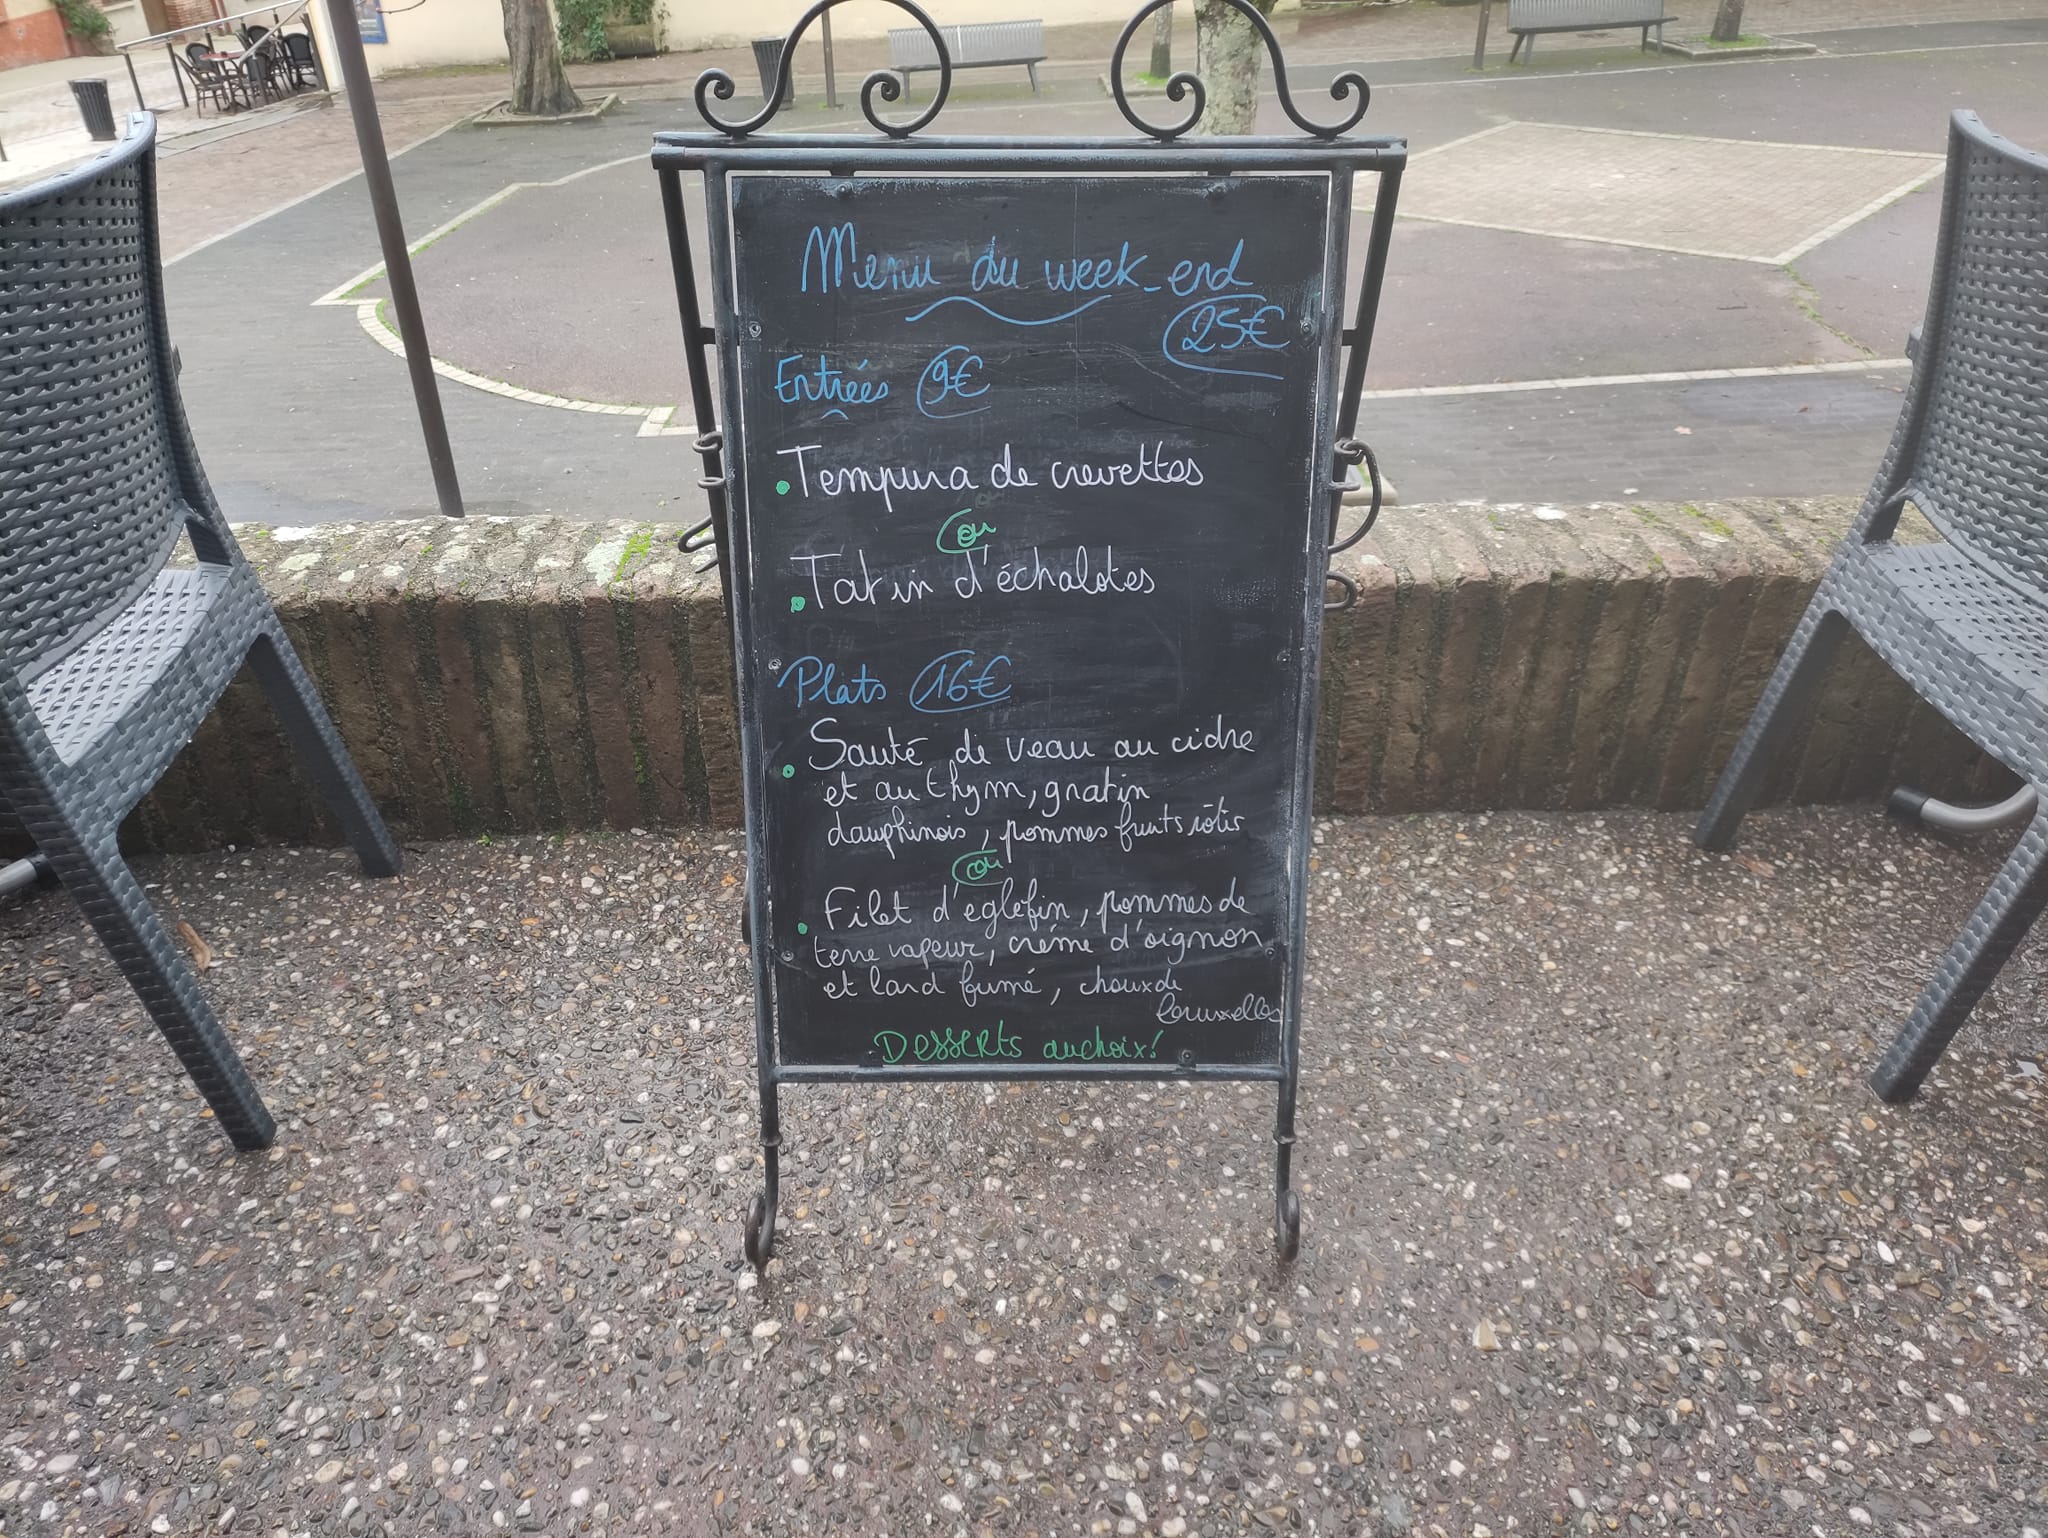 Menu du week-end
25€
Entrées 9€
Tempura de crevettes
ou
Tatin d'échalotes
Plats 16€
Sauté de veau au cidre
et au thym, gratin
dauphinois, pommes fruits rôtis
ou
Filet d'eglefin, pommes de
terre vapeur, crème d'oignon
et lard fumé, choux de
bruxelles
Desserts au choix!